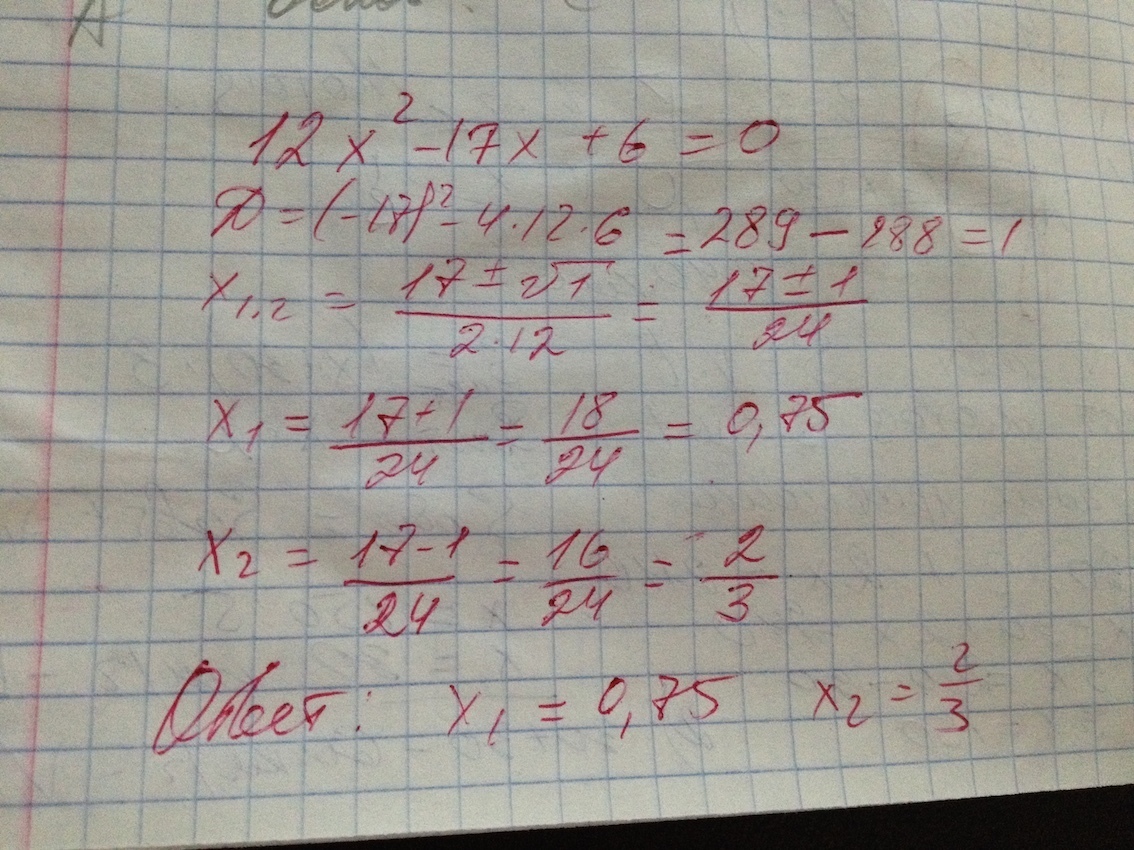 12x² - 17x + 6 = 0
D = (-17)² - 4·12·6 = 289 - 288 = 1
x₁,₂ = (17 ± √1)/(2·12) = (17 ± 1)/24
x₁ = (17+1)/24 = 18/24 = 0,75
x₂ = (17-1)/24 = 16/24 = 2/3
Ответ: x₁ = 0,75 x₂ = 2/3